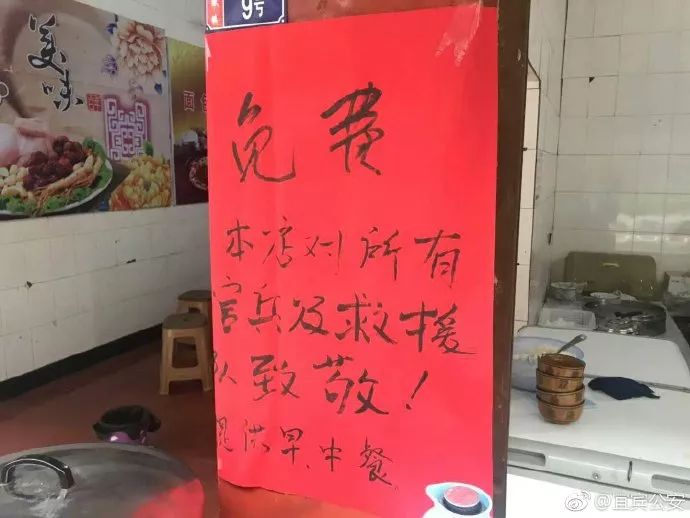 9号
美味
面
免费
本店对所有
官兵及救援
队致敬!
提供早、中餐
@宜宾公安